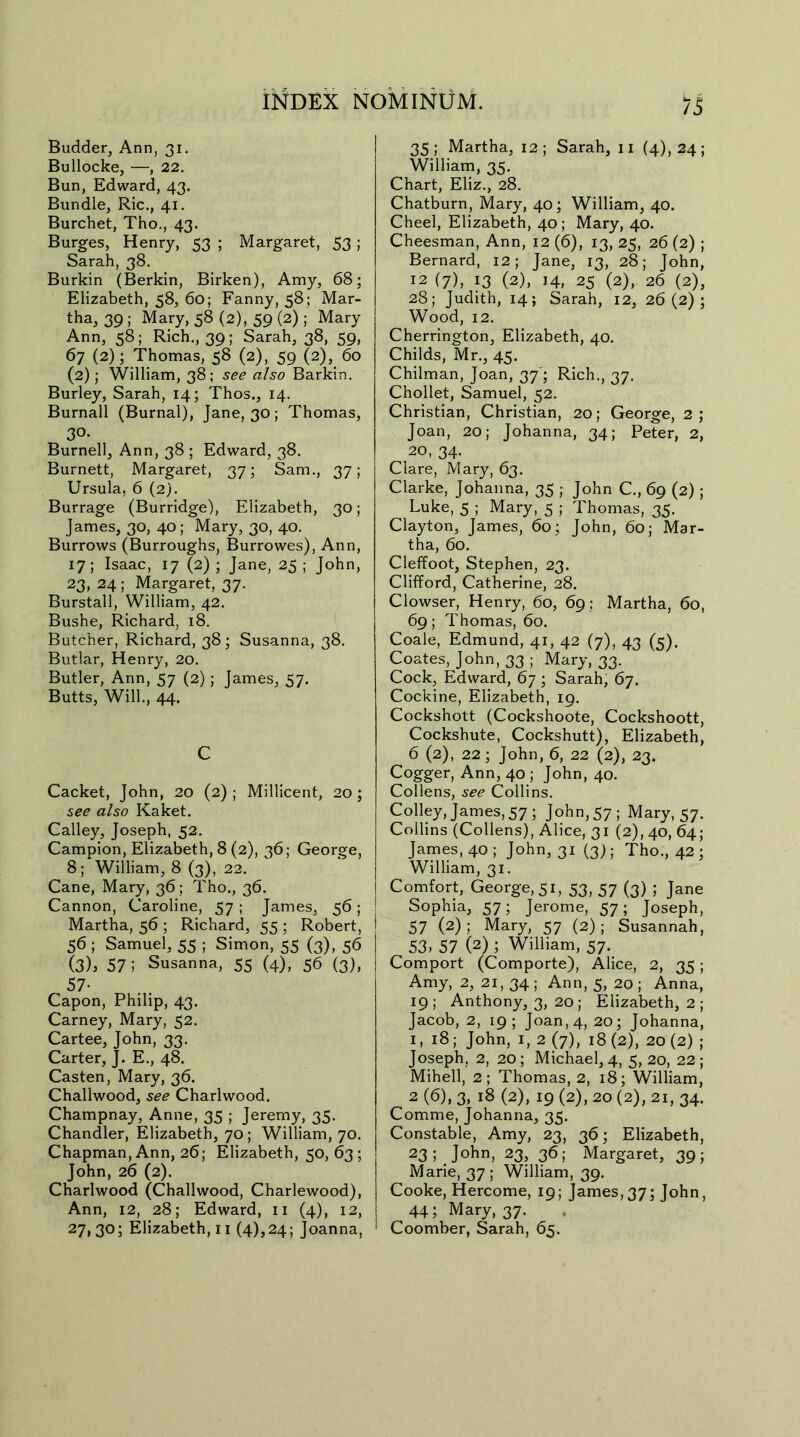 INDEX NOMINUM.
75
Budder, Ann, 31.
Bullocke, —, 22.
Bun, Edward, 43.
Bundle, Ric., 41.
Burchet, Tho., 43.
Burges, Henry, 53 ; Margaret, 53 ;
Sarah, 38.
Burkin (Berkin, Birken), Amy, 68;
Elizabeth, 58, 60; Fanny, 58; Mar-
tha, 39 ; Mary, 58 (2), 59 (2) ; Mary
Ann, 58; Rich., 39; Sarah, 38, 59,
67 (2) ; Thomas, 58 (2), 59 (2), 60
(2) ; William, 38; see also Barkin.
Burley, Sarah, 14; Thos., 14.
Burnall (Burnal), Jane, 30; Thomas,
30.
Burnell, Ann, 38 ; Edward, 38.
Burnett, Margaret, 37; Sam., 37;
Ursula, 6 (2).
Burrage (Burridge), Elizabeth, 30;
James, 30, 40; Mary, 30, 40.
Burrows (Burroughs, Burrowes), Ann,
17; Isaac, 17 (2) ; Jane, 25 ; John,
23, 24 ; Margaret, 37.
Burstall, William, 42.
Bushe, Richard, 18.
Butcher, Richard, 38 ; Susanna, 38.
Butlar, Henry, 20.
Butler, Ann, 57 (2) ; James, 57.
Butts, Will., 44.
C
Cacket, John, 20 (2) ; Millicent, 20 ;
see also Kaket.
Calley, Joseph, 52.
Campion, Elizabeth, 8 (2), 36; George,
8; William, 8 (3), 22.
Cane, Mary, 36; Tho., 36.
Cannon, Caroline, 57; James, 56;
Martha, 56; Richard, 55; Robert,
56; Samuel, 55 ; Simon, 55 (3), 56
(3), 57; Susanna, 55 (4), 56 (3),
57.
Capon, Philip, 43.
Carney, Mary, 52.
Cartee, John, 33.
Carter, J. E., 48.
Casten, Mary, 36.
Challwood, see Charlwood.
Champnay, Anne, 35 ; Jeremy, 35.
Chandler, Elizabeth, 70; William, 70.
Chapman, Ann, 26; Elizabeth, 50, 63 ;
John, 26 (2).
Charlwood (Challwood, Charlewood),
Ann, 12, 28; Edward, 11 (4), 12,
27, 30; Elizabeth, 11 (4), 24; Joanna,
35; Martha, 12; Sarah, 11 (4), 24;
William, 35.
Chart, Eliz., 28.
Chatburn, Mary, 40; William, 40.
Cheel, Elizabeth, 40; Mary, 40.
Cheesman, Ann, 12 (6), 13, 25, 26 (2) ;
Bernard, 12; Jane, 13, 28; John,
12 (7), 13 (2), 14, 25 (2), 26 (2),
28; Judith, 14; Sarah, 12, 26 (2) ;
Wood, 12.
Cherrington, Elizabeth, 40.
Childs, Mr., 45.
Chilman, Joan, 37 ; Rich., 37.
Chollet, Samuel, 52.
Christian, Christian, 20; George, 2 ;
Joan, 20; Johanna, 34; Peter, 2,
20, 34.
Clare, Mary, 63.
Clarke, Johanna, 35 ; John C., 69 (2) ;
Luke, 5 ; Mary, 5 ; Thomas, 35.
Clayton, James, 60; John, 60; Mar-
tha, 60.
Cleffoot, Stephen, 23.
Clifford, Catherine, 28.
Clowser, Henry, 60, 69; Martha, 60,
69; Thomas, 60.
Coale, Edmund, 41, 42 (7), 43 (5).
Coates, John, 33 ; Mary, 33.
Cock, Edward, 67 ; Sarah, 67.
Cockine, Elizabeth, 19.
Cockshott (Cockshoote, Cockshoott,
Cockshute, Cockshutt), Elizabeth,
6 (2), 22; John, 6, 22 (2), 23.
Cogger, Ann, 40 ; John, 40.
Collens, see Collins.
Colley, James, 57 ; John, 57 ; Mary, 57.
Collins (Collens), Alice, 31 (2), 40, 64;
James, 40; John, 31 (3); Tho., 42;
William, 31.
Comfort, George, 51, 53, 57 (3) ; Jane
Sophia, 57; Jerome, 57; Joseph,
57 (2); Mary, 57 (2); Susannah,
53, 57 (2) ; William, 57.
Comport (Comporte), Alice, 2, 35;
Amy, 2, 21, 34; Ann, 5, 20; Anna,
19; Anthony, 3, 20; Elizabeth, 2;
Jacob, 2, 19; Joan, 4, 20; Johanna,
1, 18; John, 1, 2 (7), 18 (2), 20 (2) ;
Joseph, 2, 20; Michael, 4, 5, 20, 22;
Mihell, 2; Thomas, 2, 18; William,
2 (6), 3, 18 (2), 19 (2), 20 (2), 21, 34.
Comme, Johanna, 35.
Constable, Amy, 23, 36; Elizabeth,
23; John, 23, 36; Margaret, 39;
Marie, 37; William, 39.
Cooke, Hercome, 19; James, 37; John,
44; Mary, 37.
Coomber, Sarah, 65.